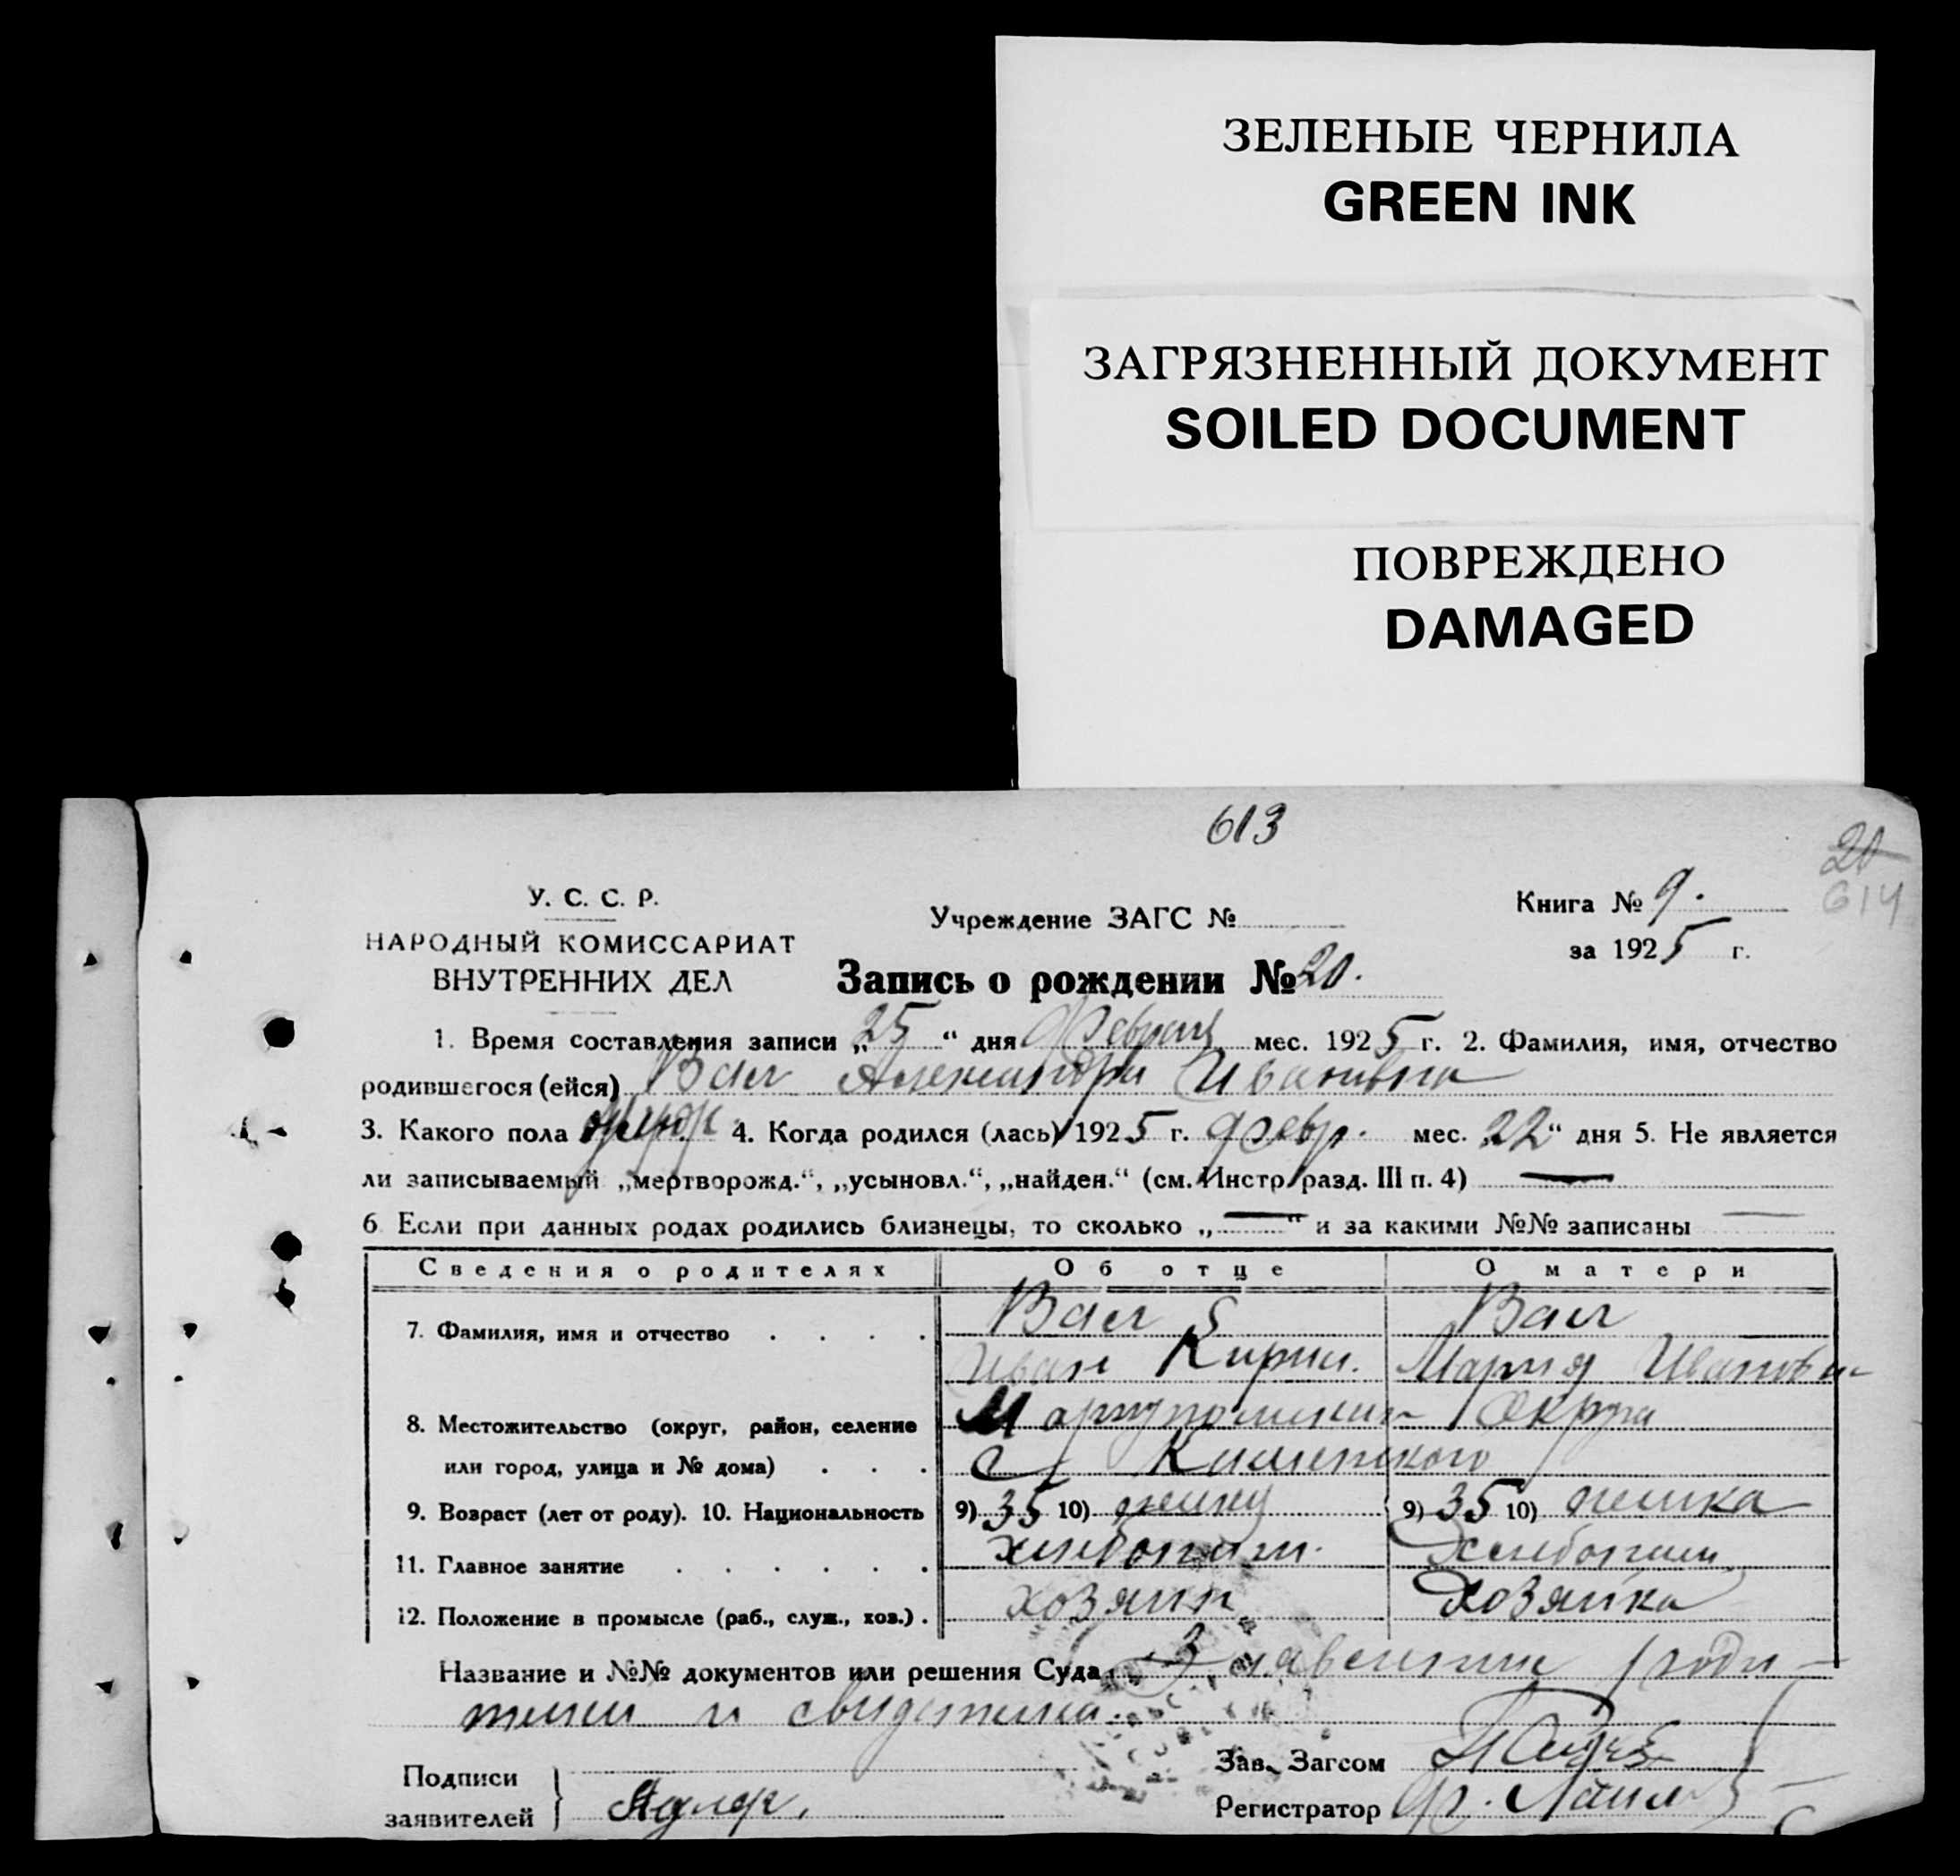 ЗЕЛЕНЫЕ ЧЕРНИЛА
GREEN INK
ЗАГРЯЗНЕННЫЙ ДОКУМЕНТ
SOILED DOCUMENT
ПОВРЕЖДЕНО
DAMAGED
613
20
614
У. С. С. Р.
НАРОДНЫЙ КОМИССАРИАТ
ВНУТРЕННИХ ДЕЛ
Учреждение ЗАГС №
Книга № 9.
за 1925 г.
Запись о рождении № 20.
1. Время составления записи „25“ дня Февраля мес. 1925 г. 2. Фамилия, имя, отчество
родившегося (ейся) Александра Ивановна
3. Какого пола 4. Когда родился (лась) 1925 г. февр. мес. „22“ дня 5. Не является
ли записываемый „мертворожд.“, „усыновл.“, „найден.“ (см. Инстр. разд. III п. 4) —
6 Если при данных родах родились близнецы, то сколько „—“ и за какими №№ записаны —
Сведения о родителях Об отце О матери
7. Фамилия, имя и отчество . . . .
Иван Кирил. Мария Ивановн
8. Местожительство (округ, район, селение Округа
или город, улица и № дома) . . . с
9. Возраст (лет от роду). 10. Национальность 9) 35 10) 9) 35 10)
11. Главное занятие . . . . . . хлебопаш.
12. Положение в промысле (раб., служ., хоз.) . хозяин хозяйка
Название и №№ документов или решения Суда заявление роди-
тели и
Подписи
заявителей
Зав. Загсом
Регистратор